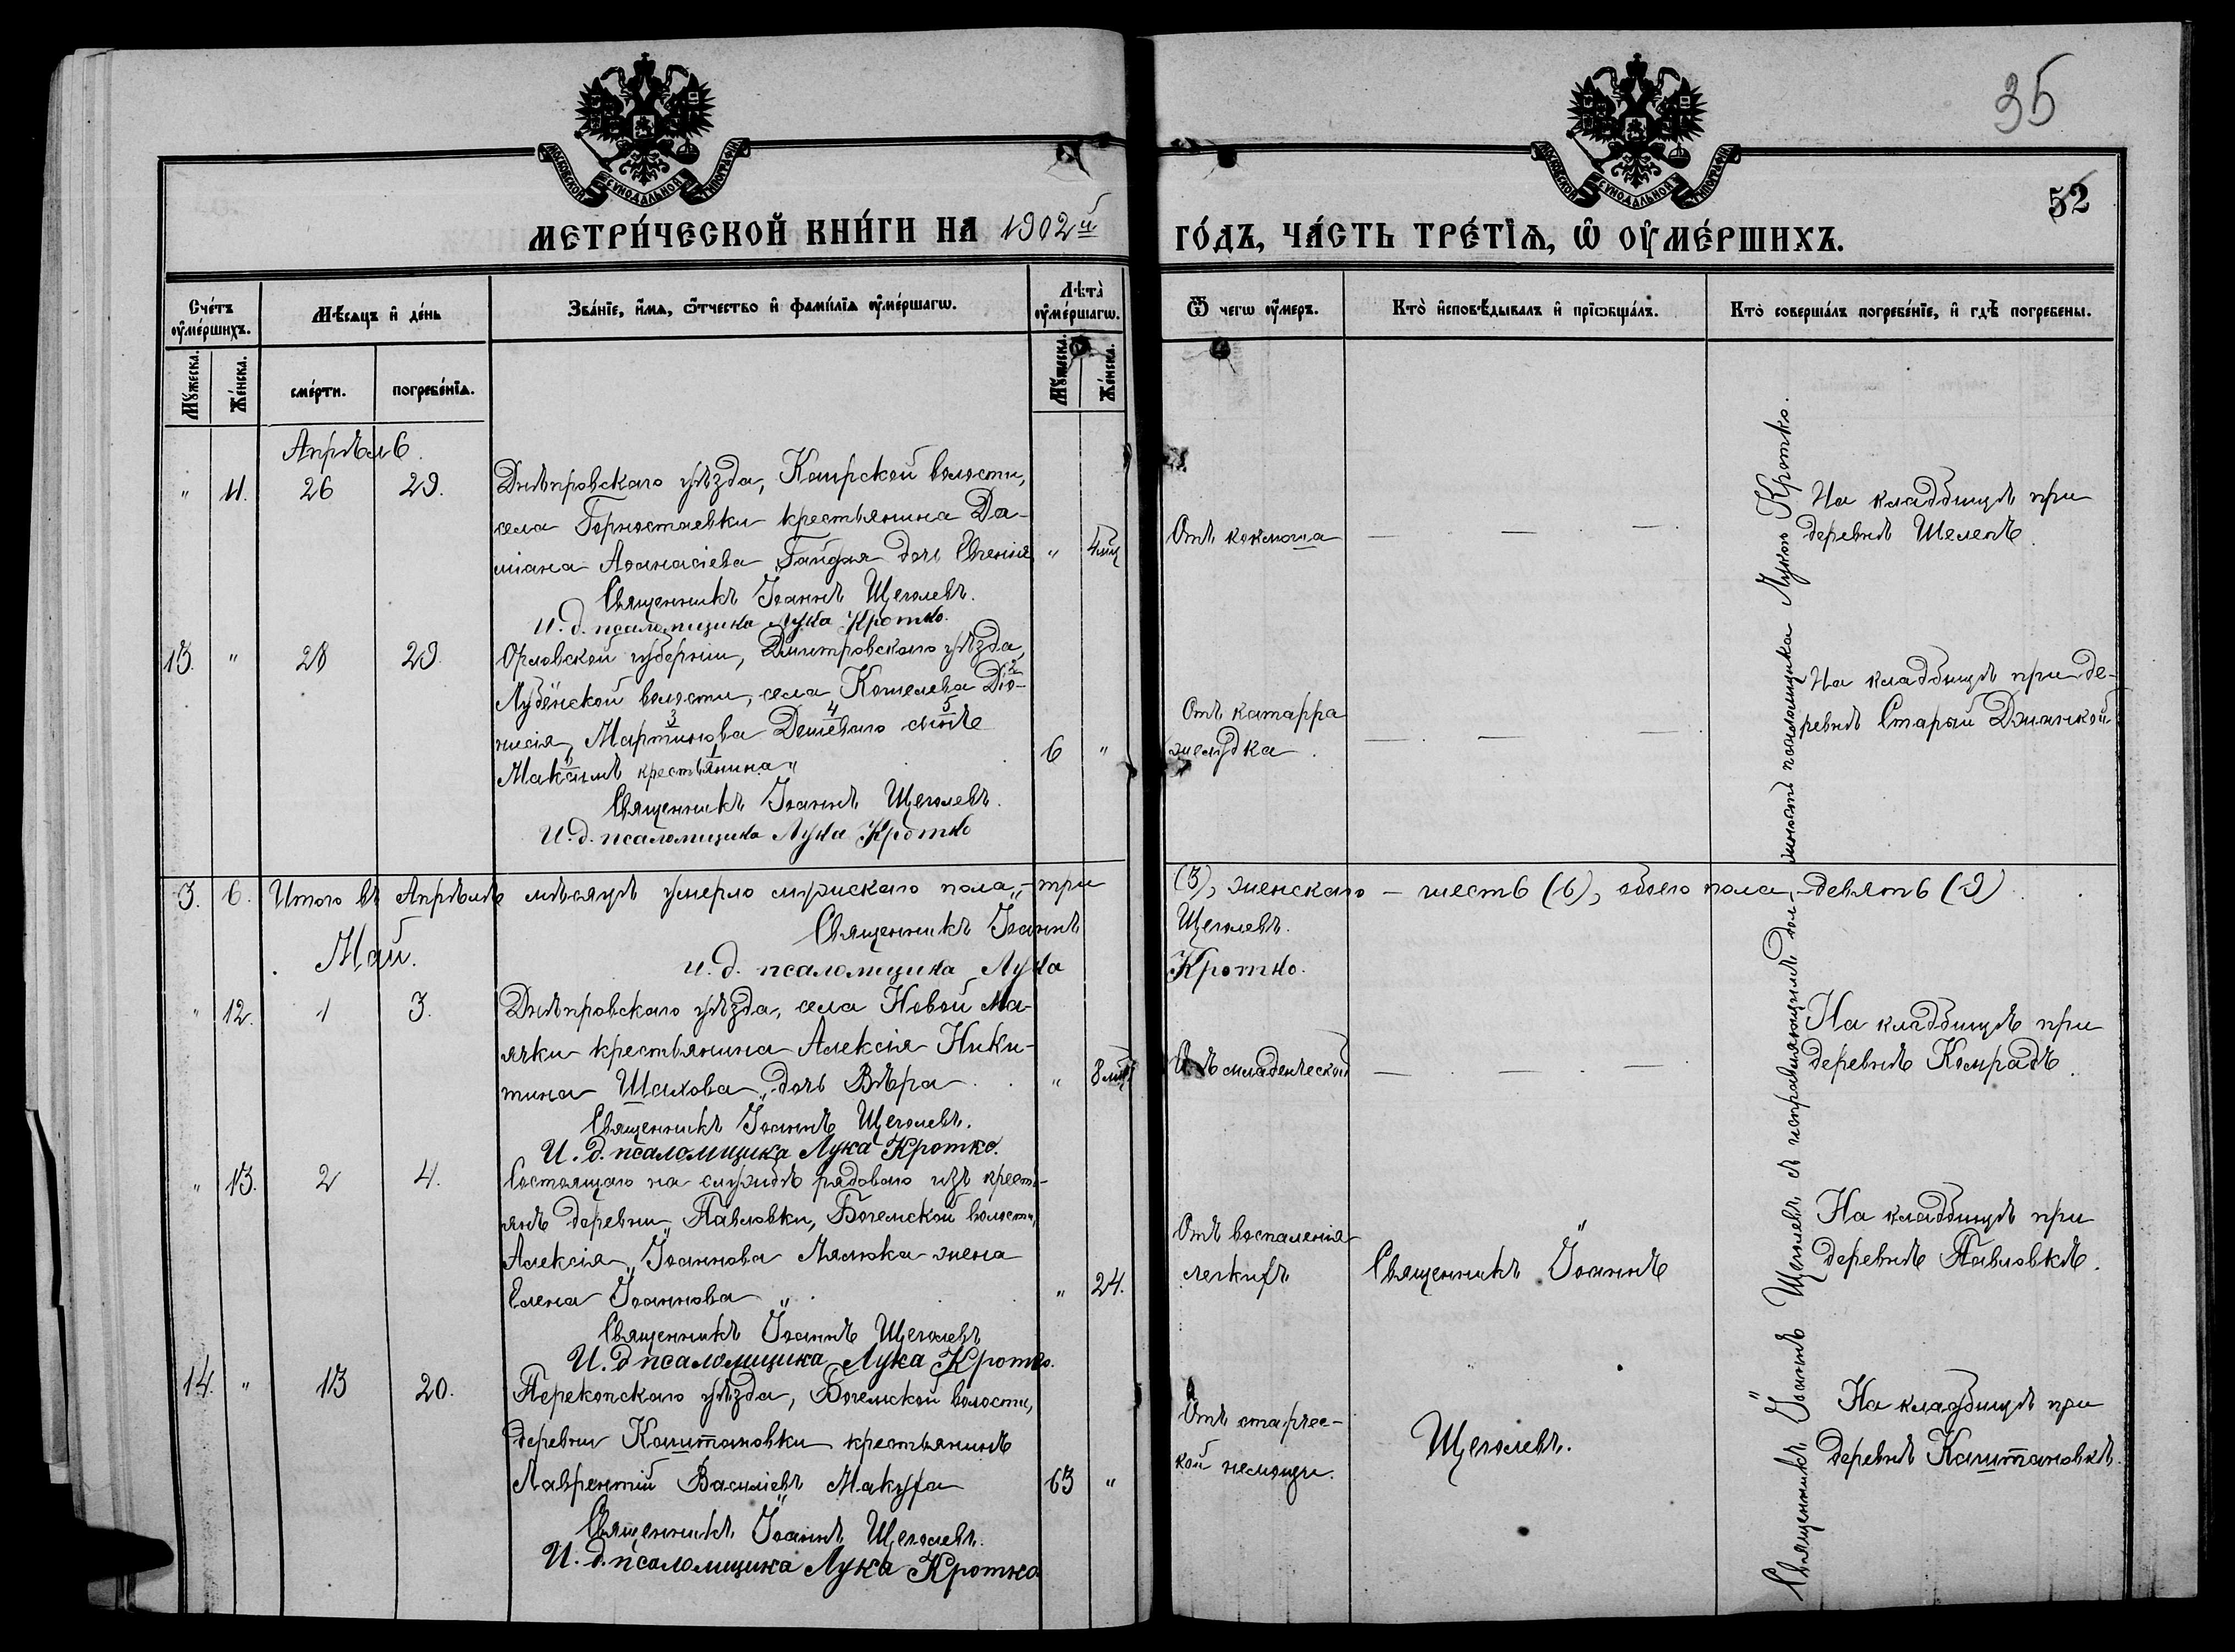 35
52
МОСКОВСКОЙ СѴНОДАЛЬНОЙ ТИПОГРАФІИ
МОСКОВСКОЙ СѴНОДАЛЬНОЙ ТИПОГРАФІИ
МЕТРИ́ЧЕСКОЙ КНИ́ГИ НА 1902й
ГО́ДЪ, ЧА́СТЬ ТРЕ́ТІѦ, Ѡ ОУМЕ́РШИХЪ.
Сче́тъ оуме́ршихъ.
Мѣ́сяцъ и де́нь
Зва́нїе, и́мѧ, ѿтчество и фами́лїѧ оуме́ршагѡ.
Лѣта̀ оуме́ршагѡ.
Ѿ чегѡ оумеръ.
Кто̀ исповѣ́дывалъ и прїѡбща́лъ.
Кто̀ соверша́лъ погребе́нїе, и гдѣ̀ погребены.
Мꙋжеска.
Же́нска.
сме́рти.
погребе́нїѧ.
Мꙋжеска.
Же́нска.
Апрѣль.
" 11. 26 29. Днѣпровскаго уѣзда, Каирской волости,
села Горностаевки крестьянина Да-
міана Аѳанасіева Гайдая дочь Евгенія " 4 мц
Священникъ Іоаннъ Щеголевъ.
И. д. псаломщика Лука Кротко.
Отъ коклюша
На кладбищѣ при
деревнѣ Шеленѣ.
13. " 28 29. Орловской губерніи, Дмитровскаго уѣзда,
Лубёнской волости, села Кошелева Діо-
нисія Мартинова Дешеваго сынъ
Максимъ крестьянина 6 "
2 3 4 5 1
Священникъ Іоаннъ Щеголевъ.
И. д. псаломщика Лука Кротко
Отъ катарра
желудка.
На кладбищѣ при де-
ревнѣ Старый Джанкой
3. 6. Итого въ Апрѣлѣ мѣсяцѣ умерло мужскаго пола, – три (3), женскаго – шесть (6), обоего пола, – девять (9).
Священникъ Іоаннъ Щеголевъ.
и. д. псаломщика Лука Кротко.
Май.
" 12. 1 3. Днѣпровскаго уѣзда, села Новой Ма-
ячки крестьянина Алексія Ники-
тина Шахова дочь Вѣра " 8 мц.
Священникъ Іоаннъ Щеголевъ.
И. д. псаломщика Лука Кротко.
Отъ младенческой
На кладбищѣ при
деревнѣ Комрадѣ.
" 13. 2 4. Состоящаго на службѣ рядоваго изъ кресть-
янъ деревни Павловки, Богемской волости,
Алексія Іоаннова Лялюка жена
Елена Іоаннова " 24.
Священникъ Іоаннъ Щеголевъ
И. д псаломщика Лука Кротко.
Отъ воспаленія
легкихъ
Священникъ Іоаннъ
На кладбищѣ при
деревнѣ Павловкѣ.
14. " 18 20. Перекопскаго уѣзда, Богемской волости,
деревни Каштановки крестьянинъ
Лаврентій Василіевъ Макуха 63 "
Священникъ Іоаннъ Щеголевъ.
И. д. псаломщика Лука Кротко
Отъ старчес-
кой немощи.
Щеголевъ.
На кладбищѣ при
деревнѣ Каштановкѣ.
Священникъ Іоаннъ Щеголевъ съ исправляющимъ дол-
жность псаломщика Лукою Кротко.